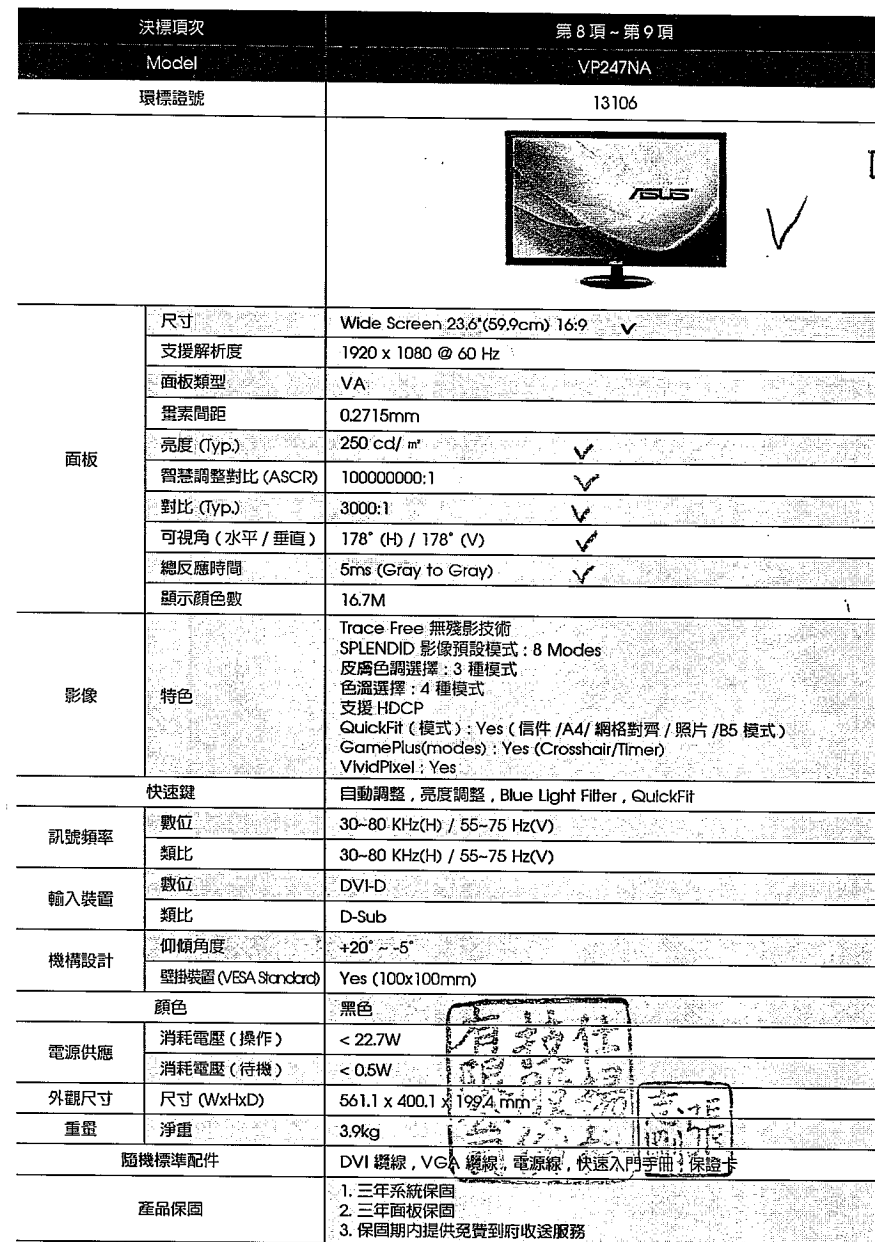 決標項次 第8項~第9項
Model VP247NA
環標證號 13106
ASUS
面板
尺寸 Wide Screen 23.6"(59.9cm) 16:9
支援解析度 1920 x 1080 @ 60 Hz
面板類型 VA
畫素間距 0.2715mm
亮度 (Typ.) 250 cd/ m²
智慧調整對比 (ASCR) 100000000:1
對比 (Typ.) 3000:1
可視角 ( 水平 / 垂直 ) 178° (H) / 178° (V)
總反應時間 5ms (Gray to Gray)
顯示顏色數 16.7M
影像 特色
Trace Free 無殘影技術
SPLENDID 影像預設模式 : 8 Modes
皮膚色調選擇 : 3 種模式
色溫選擇 : 4 種模式
支援 HDCP
QuickFit ( 模式 ) : Yes ( 信件 /A4/ 網格對齊 / 照片 /B5 模式 )
GamePlus(modes) : Yes (Crosshair/Timer)
VividPixel : Yes
快速鍵 自動調整 , 亮度調整 , Blue Light Filter , QuickFit
訊號頻率
數位 30~80 KHz(H) / 55~75 Hz(V)
類比 30~80 KHz(H) / 55~75 Hz(V)
輸入裝置
數位 DVI-D
類比 D-Sub
機構設計
仰傾角度 +20° ~ -5°
壁掛裝置 (VESA Standard) Yes (100x100mm)
顏色 黑色
電源供應
消耗電壓 ( 操作 ) < 22.7W
消耗電壓 ( 待機 ) < 0.5W
外觀尺寸 尺寸 (WxHxD) 561.1 x 400.1 x 199.4 mm
重量 淨重 3.9kg
隨機標準配件 DVI 纜線 , VGA 纜線 , 電源線 , 快速入門手冊 , 保證卡
產品保固
1. 三年系統保固
2. 三年面板保固
3. 保固期內提供免費到府收送服務